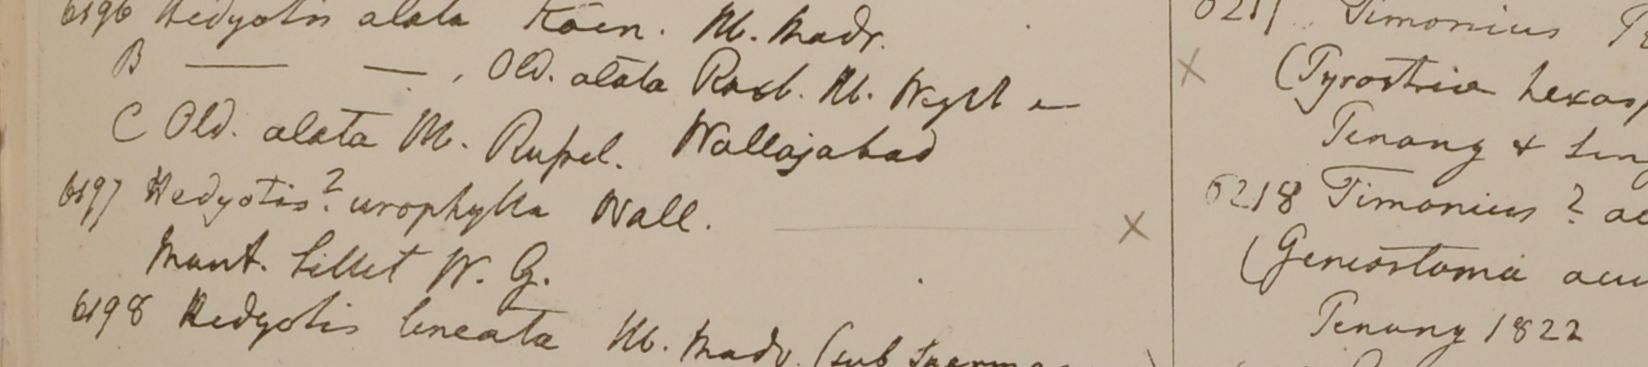 6196 Hedyotis alata Koen. Hb. Madr.
B —— —— , Old. alata Roxb. Hb. Wight
C Old. alata Hb. Rupel. Wallajabad
6197 Hedyotis? urophylla Wall. X
Mont. Sillet W. G.
6198 Hedyotis lineata Hb. Madr. (sub
Timonius
X (Pyrostria hexasp
Penang &
6218 Timonius ?
(Geniostoma acu
Penang 1822